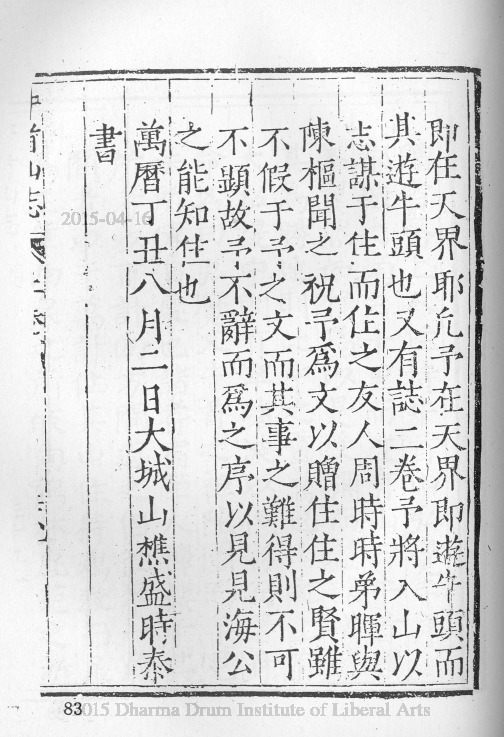 即在天界耶允予在天界即遊牛頭而
其遊牛頭也又有誌二卷予將入山以
志謀于住而住之友人周時時弟暉與
陳樞聞之祝予爲文以贈住住之賢雖
不假于予之文而其事之難得則不可
不顯故予不辭而爲之序以見見海公
之能知住也
萬曆丁丑八月二日大城山樵盛時泰
書
2015-04-16
83
2015 Dharma Drum Institute of Liberal Arts